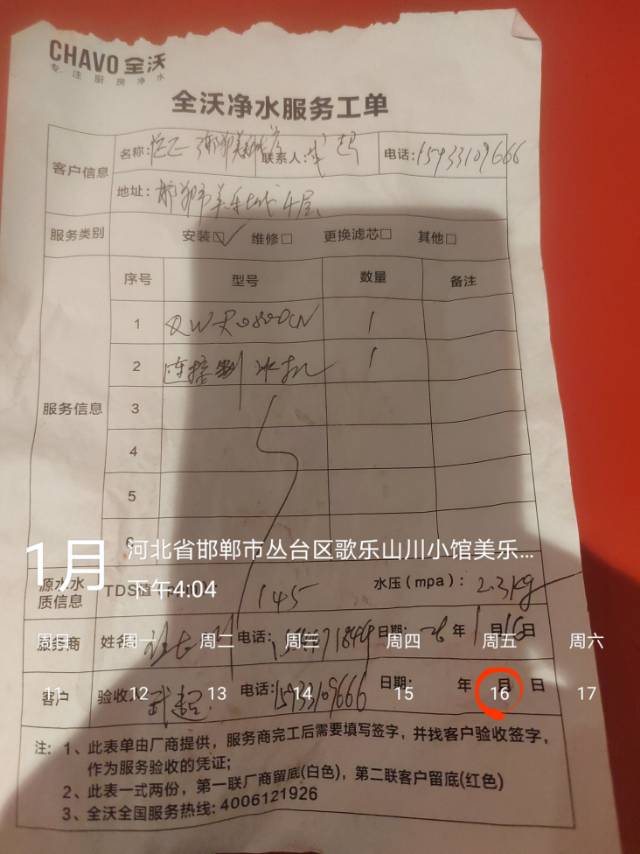 CHAVO 全沃
专注厨房净水
全沃净水服务工单
客户信息
名称: 联系人: 电话: 15933109666
地址: 邯郸市美乐城4层
服务类别 安装☑ 维修□ 更换滤芯□ 其他□
服务信息
序号 型号 数量 备注
1 1
2 连接制冰机 1
3
4
5
6
1月
河北省邯郸市丛台区歌乐山川小馆美乐...
下午4:04
源水水质信息 TDS 145 水压(mpa): 2.3kg
服务商 姓名 电话: 日期: 26年1月16日
周日 周一 周二 周三 周四 周五 周六
客户 验收人 武超 电话: 15933109666 日期: 年 月 日
11 12 13 14 15 16 17
注: 1、此表单由厂商提供，服务商完工后需要填写签字，并找客户验收签字，
作为服务验收的凭证;
2、此表一式两份，第一联厂商留底(白色)，第二联客户留底(红色)
3、全沃全国服务热线: 4006121926